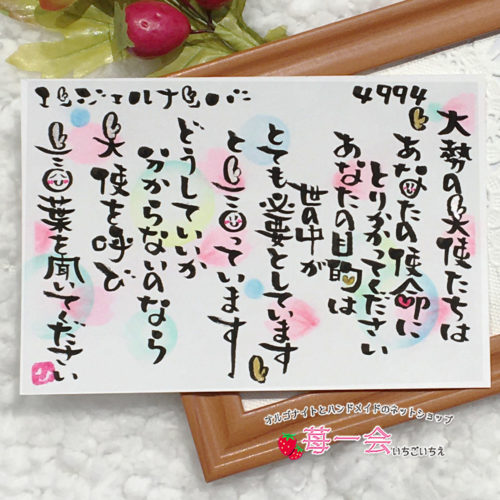 エンジェルナンバー
4994
大勢の天使たちは
あなたの使命に
とりかかってください
あなたの目的は
世の中が
とても必要としています
と言っています
どうしていいか
分からないのなら
天使を呼び
言葉を聞いてください
オルゴナイトとハンドメイドのネットショップ
苺一会
いちごいちえ